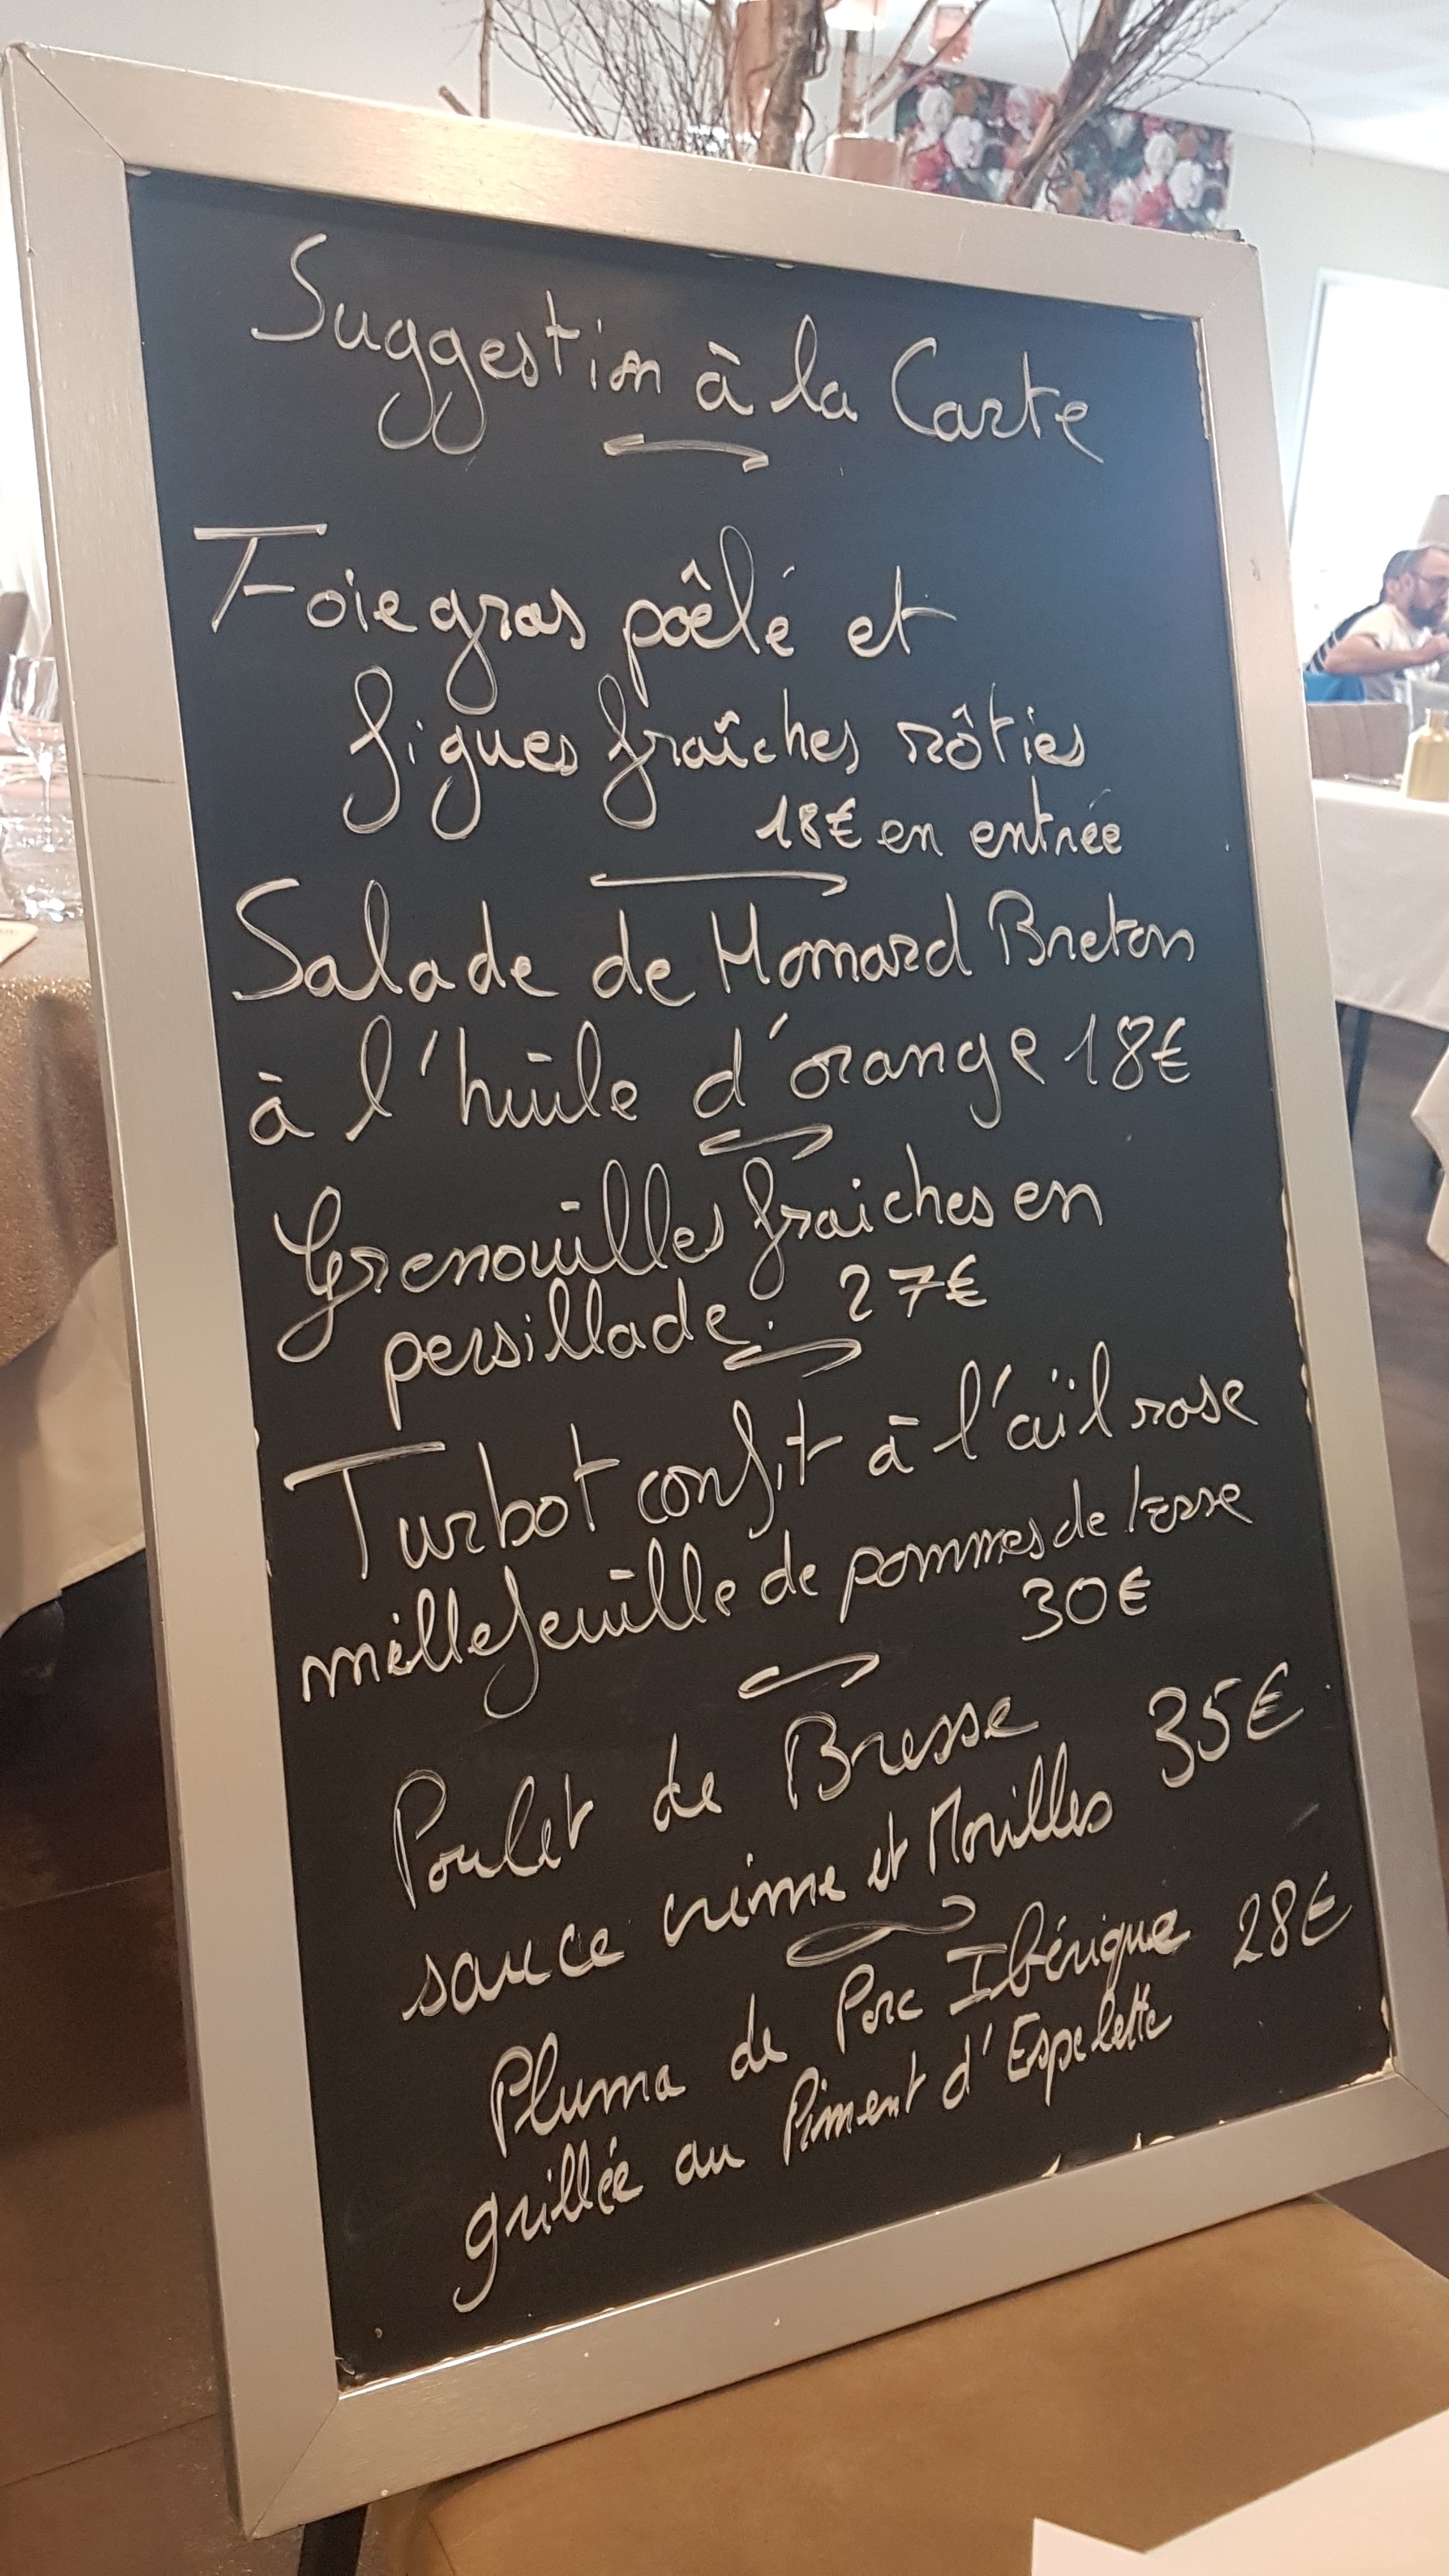 Suggestion à la Carte
Foie gras pôêlé et
figues fraîches rôties
18€ en entrée
Salade de Homard Breton
à l'huile d'orange 18€
Grenouilles fraiches en
persillade. 27€
Turbot confit à l'aïl rose
millefeuille de pommes de terre
30€
Poulet de Bresse
sauce crème et Morilles 35€
Pluma de Porc Ibérique 28€
grillée au Piment d'Espelette